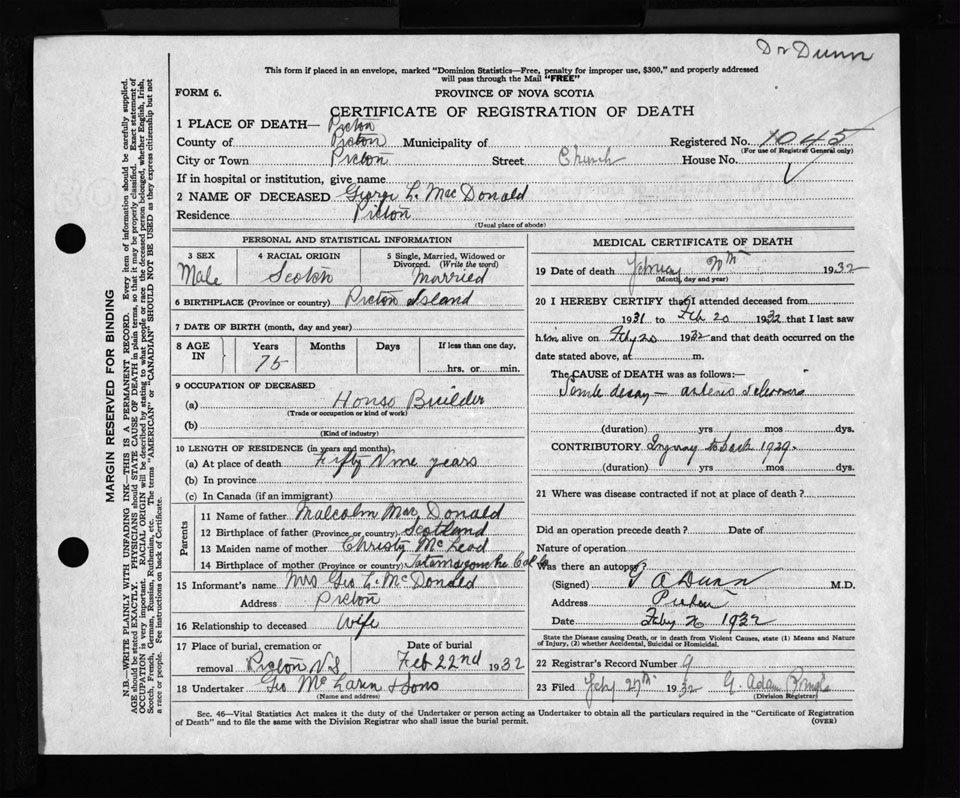 Dr Dunn
This form if placed in an envelope, marked "Dominion Statistics—Free, penalty for improper use, $300," and properly addressed
will pass through the Mail "FREE"
FORM 6. PROVINCE OF NOVA SCOTIA
CERTIFICATE OF REGISTRATION OF DEATH
1 PLACE OF DEATH— Pictou
County of Pictou Municipality of Registered No. 1045
(For use of Registrar General only)
City or Town Pictou Street Church House No.
If in hospital or institution, give name
2 NAME OF DECEASED George L. MacDonald
Residence Pictou
(Usual place of abode)
PERSONAL AND STATISTICAL INFORMATION
3 SEX 4 RACIAL ORIGIN 5 Single, Married, Widowed or
Divorced. (Write the word)
Male Scotch Married
6 BIRTHPLACE (Province or country) Pictou Island
7 DATE OF BIRTH (month, day and year)
8 AGE IN Years Months Days If less than one day,
75 hrs. or min.
9 OCCUPATION OF DECEASED
(a) House Builder
(Trade or occupation or kind of work)
(b)
(Kind of industry)
10 LENGTH OF RESIDENCE (in years and months)
(a) At place of death Fifty Nine years
(b) In province
(c) In Canada (if an immigrant)
Parents
11 Name of father Malcolm MacDonald
12 Birthplace of father (Province or country) Scotland
13 Maiden name of mother Christy McLeod
14 Birthplace of mother (Province or country)
15 Informant's name Mrs Geo L. McDonald
Address Pictou
16 Relationship to deceased Wife
17 Place of burial, cremation or Date of burial
removal Pictou N.S Feb 22nd 1932
18 Undertaker Geo McLaren & Sons
(Name and address)
MEDICAL CERTIFICATE OF DEATH
19 Date of death February 1932
(Month, day and year)
20 I HEREBY CERTIFY that I attended deceased from
1931 to Feb 20 1932 that I last saw
him alive on Feby 20 1932 and that death occurred on the
date stated above, at m.
The CAUSE of DEATH was as follows:—
Senile decay — arterio sclerosis
(duration) yrs mos dys.
CONTRIBUTORY Injury to back 1929.
(duration) yrs mos dys.
21 Where was disease contracted if not at place of death?
Did an operation precede death? Date of
Nature of operation
Was there an autopsy?
(Signed) G A Dunn M.D.
Address Pictou
Date Feby 26 1932
State the Disease causing Death, or in death from Violent Causes, state (1) Means and Nature
of Injury, (2) whether Accidental, Suicidal or Homicidal.
22 Registrar's Record Number 9
23 Filed Feby 27th 1932 G. Adam
(Division Registrar)
Sec. 46—Vital Statistics Act makes it the duty of the Undertaker or person acting as Undertaker to obtain all the particulars required in the "Certificate of Registration
of Death" and to file the same with the Division Registrar who shall issue the burial permit. (OVER)
MARGIN RESERVED FOR BINDING
N.B.—WRITE PLAINLY WITH UNFADING INK—THIS IS A PERMANENT RECORD. Every item of information should be carefully supplied.
AGE should be stated EXACTLY. PHYSICIANS should STATE CAUSE OF DEATH in plain terms, so that it may be properly classified. Exact statement of
OCCUPATION is very important. RACIAL ORIGIN will be described by stating to what people or race the deceased person belonged, whether English, Irish,
Scotch, French, German, Russian, Ruthenian, etc. The terms "AMERICAN" or "CANADIAN" SHOULD NOT BE USED as they express citizenship but not
a race or people. See instructions on back of Certificate.